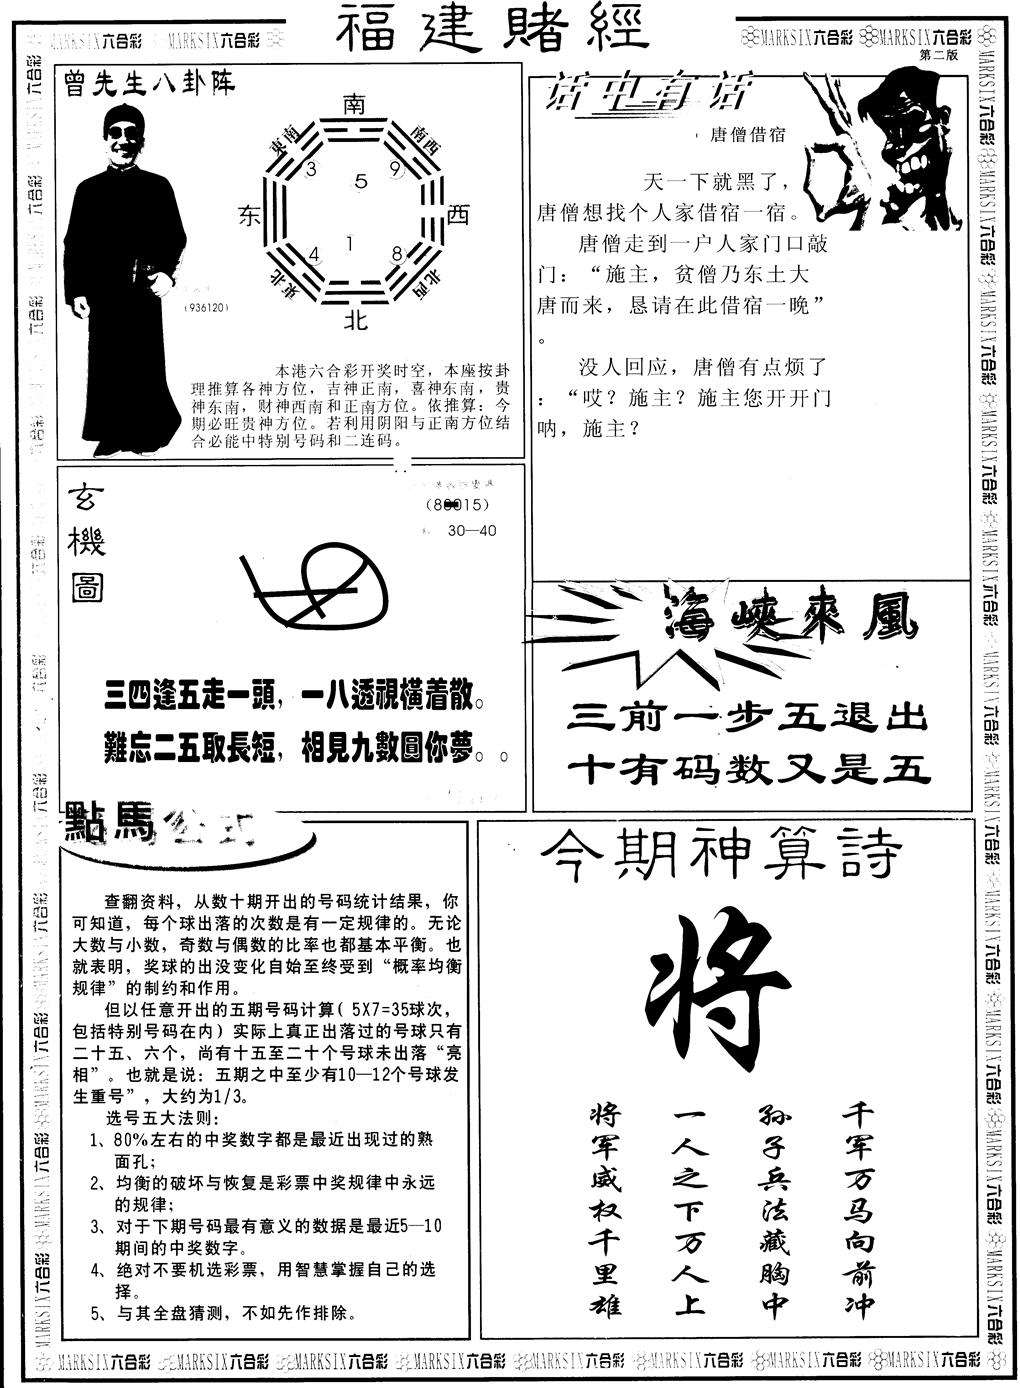 福建賭經
MARKSIX六合彩 MARKSIX六合彩
MARKSIX六合彩 MARKSIX六合彩
第二版
曾先生八卦阵
南
東南
南西
3
9
5
东
西
4
1
8
東北
北西
北
(936120)
本港六合彩开奖时空，本座按卦
理推算各神方位，吉神正南，喜神东南，贵
神东南，财神西南和正南方位。依推算：今
期必旺贵神方位。若利用阴阳与正南方位结
合必能中特别号码和二连码。
话中有话
唐僧借宿
天一下就黑了，
唐僧想找个人家借宿一宿。
唐僧走到一户人家门口敲
门：“施主，贫僧乃东土大
唐而来，恳请在此借宿一晚”
。
没人回应，唐僧有点烦了
：“哎？施主？施主您开开门
呐，施主？
玄機圖
30—40
三四逢五走一頭，一八透視橫着散。
難忘二五取長短，相見九數圓你夢。。
海峽來風
三前一步五退出
十有码数又是五
點馬公式
查翻资料，从数十期开出的号码统计结果，你
可知道，每个球出落的次数是有一定规律的。无论
大数与小数，奇数与偶数的比率也都基本平衡。也
就表明，奖球的出没变化自始至终受到“概率均衡
规律”的制约和作用。
但以任意开出的五期号码计算( 5X7=35球次，
包括特别号码在内）实际上真正出落过的号球只有
二十五、六个，尚有十五至二十个号球未出落“亮
相”。也就是说：五期之中至少有10—12个号球发
生重号”，大约为1/3。
选号五大法则：
1、80%左右的中奖数字都是最近出现过的熟
面孔；
2、均衡的破坏与恢复是彩票中奖规律中永远
的规律；
3、对于下期号码最有意义的数据是最近5—10
期间的中奖数字。
4、绝对不要机选彩票，用智慧掌握自己的选
择。
5、与其全盘猜测，不如先作排除。
今期神算詩
将
千军万马向前冲
孙子兵法藏胸中
一人之下万人上
将军威权千里雄
MARKSIX六合彩 MARKSIX六合彩 MARKSIX六合彩 MARKSIX六合彩 MARKSIX六合彩 MARKSIX六合彩 MARKSIX六合彩 MARKSIX六合彩